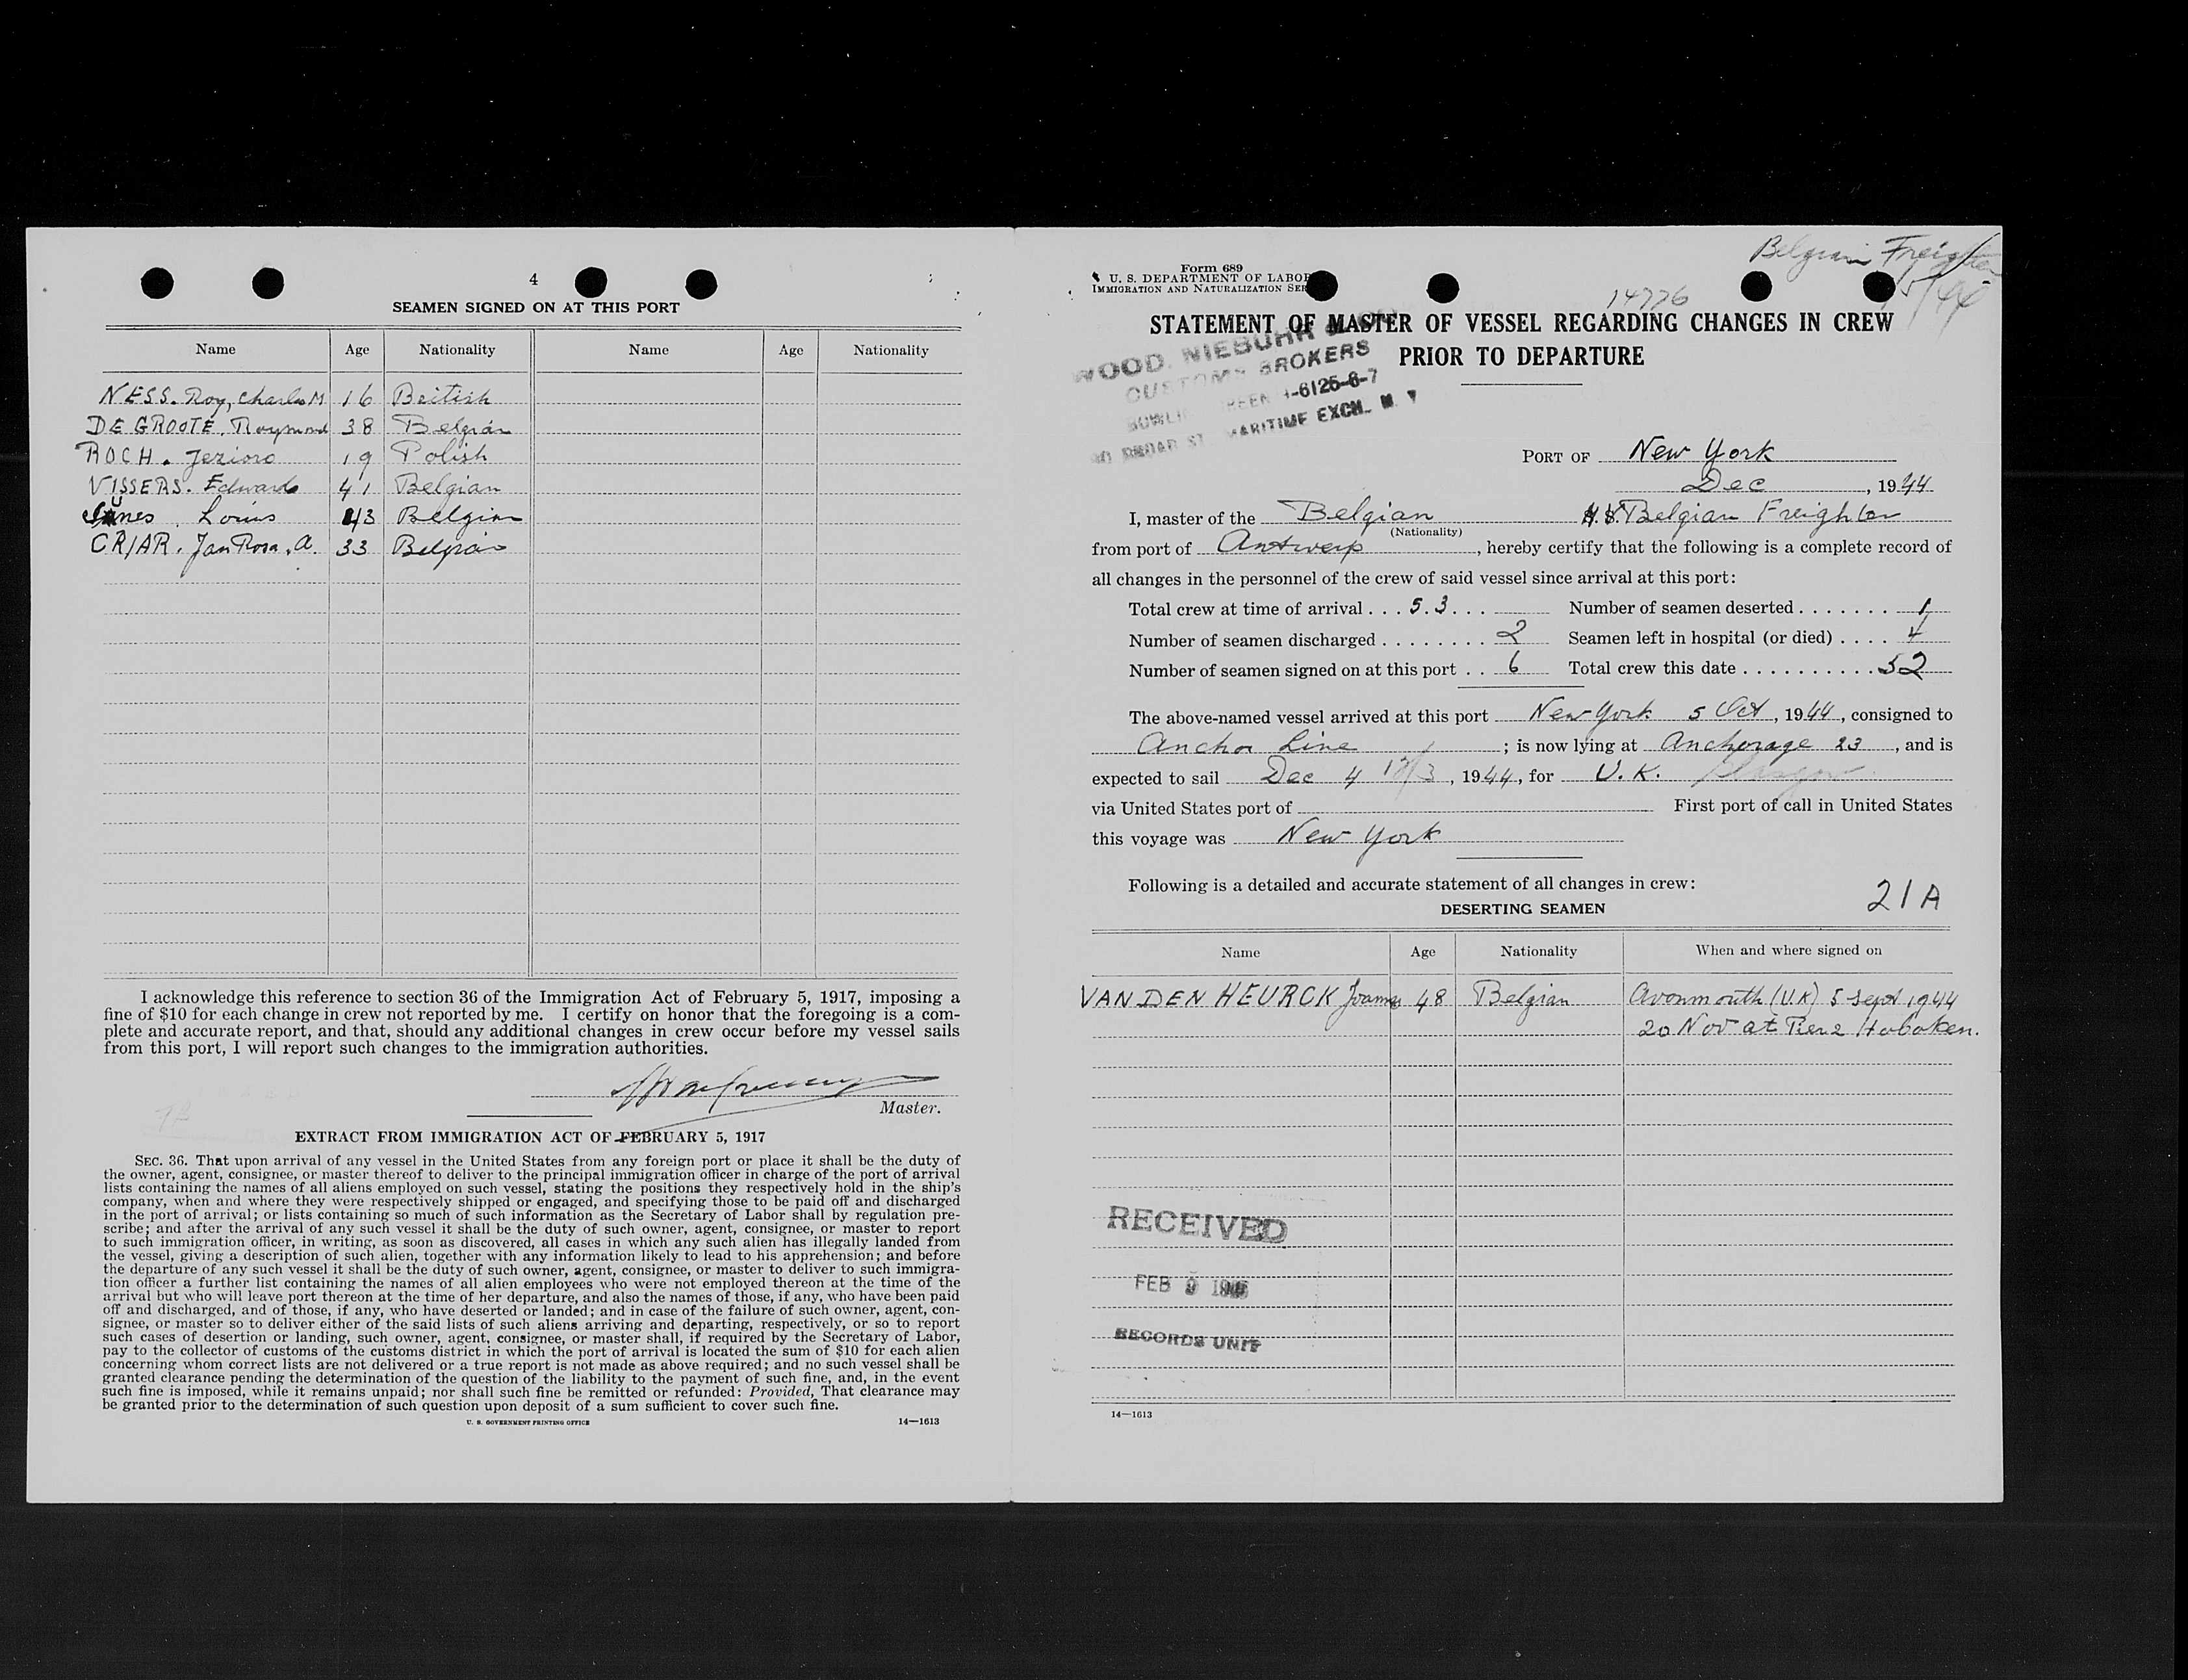 4
SEAMEN SIGNED ON AT THIS PORT
Name Age Nationality Name Age Nationality
NESS. Roy, Charles M 16 British
DE GROOTE. Raymond 38 Belgian
ROCH. Jezioro 19 Polish
VISSERS. Edward 41 Belgian
Louis 43 Belgian
CRIAR. Jan Rosa. A. 33 Belgian
I acknowledge this reference to section 36 of the Immigration Act of February 5, 1917, imposing a
fine of $10 for each change in crew not reported by me. I certify on honor that the foregoing is a com-
plete and accurate report, and that, should any additional changes in crew occur before my vessel sails
from this port, I will report such changes to the immigration authorities.
Master.
EXTRACT FROM IMMIGRATION ACT OF FEBRUARY 5, 1917
SEC. 36. That upon arrival of any vessel in the United States from any foreign port or place it shall be the duty of
the owner, agent, consignee, or master thereof to deliver to the principal immigration officer in charge of the port of arrival
lists containing the names of all aliens employed on such vessel, stating the positions they respectively hold in the ship's
company, when and where they were respectively shipped or engaged, and specifying those to be paid off and discharged
in the port of arrival; or lists containing so much of such information as the Secretary of Labor shall by regulation pre-
scribe; and after the arrival of any such vessel it shall be the duty of such owner, agent, consignee, or master to report
to such immigration officer, in writing, as soon as discovered, all cases in which any such alien has illegally landed from
the vessel, giving a description of such alien, together with any information likely to lead to his apprehension; and before
the departure of any such vessel it shall be the duty of such owner, agent, consignee, or master to deliver to such immigra-
tion officer a further list containing the names of all alien employees who were not employed thereon at the time of the
arrival but who will leave port thereon at the time of her departure, and also the names of those, if any, who have been paid
off and discharged, and of those, if any, who have deserted or landed; and in case of the failure of such owner, agent, con-
signee, or master so to deliver either of the said lists of such aliens arriving and departing, respectively, or so to report
such cases of desertion or landing, such owner, agent, consignee, or master shall, if required by the Secretary of Labor,
pay to the collector of customs of the customs district in which the port of arrival is located the sum of $10 for each alien
concerning whom correct lists are not delivered or a true report is not made as above required; and no such vessel shall be
granted clearance pending the determination of the question of the liability to the payment of such fine, and, in the event
such fine is imposed, while it remains unpaid; nor shall such fine be remitted or refunded: Provided, That clearance may
be granted prior to the determination of such question upon deposit of a sum sufficient to cover such fine.
U. S. GOVERNMENT PRINTING OFFICE 14—1613
Belgian Freighter
Form 689
U. S. DEPARTMENT OF LABOR
IMMIGRATION AND NATURALIZATION SER
14776
STATEMENT OF MASTER OF VESSEL REGARDING CHANGES IN CREW
PRIOR TO DEPARTURE
WOOD, NIEBUHR
CUSTOMS BROKERS
BOWLI REEN -6125-6-7
BROAD ST MARITIME EXCH. N. Y
PORT OF New York
Dec, 1944
I, master of the Belgian Belgian Freighter
(Nationality)
from port of Antwerp, hereby certify that the following is a complete record of
all changes in the personnel of the crew of said vessel since arrival at this port:
Total crew at time of arrival . . . 53. . . Number of seamen deserted . . . . . . . 1
Number of seamen discharged . . . . . . . . 2 Seamen left in hospital (or died) . . . . 4
Number of seamen signed on at this port . . 6 Total crew this date . . . . . . . . . . 52
The above-named vessel arrived at this port New York 5 Oct, 1944, consigned to
Anchor Line; is now lying at Anchorage 23, and is
expected to sail Dec 4 12/3, 1944, for U. K. Glasgow
via United States port of First port of call in United States
this voyage was New York
Following is a detailed and accurate statement of all changes in crew:
21A
DESERTING SEAMEN
Name Age Nationality When and where signed on
VAN DEN HEURCK 48 Belgian Avonmouth (U.K) 5 Sept 1944
20 Nov at Pier 2 Hoboken.
RECEIVED
FEB 9
RECORDS UNIT
14—1613